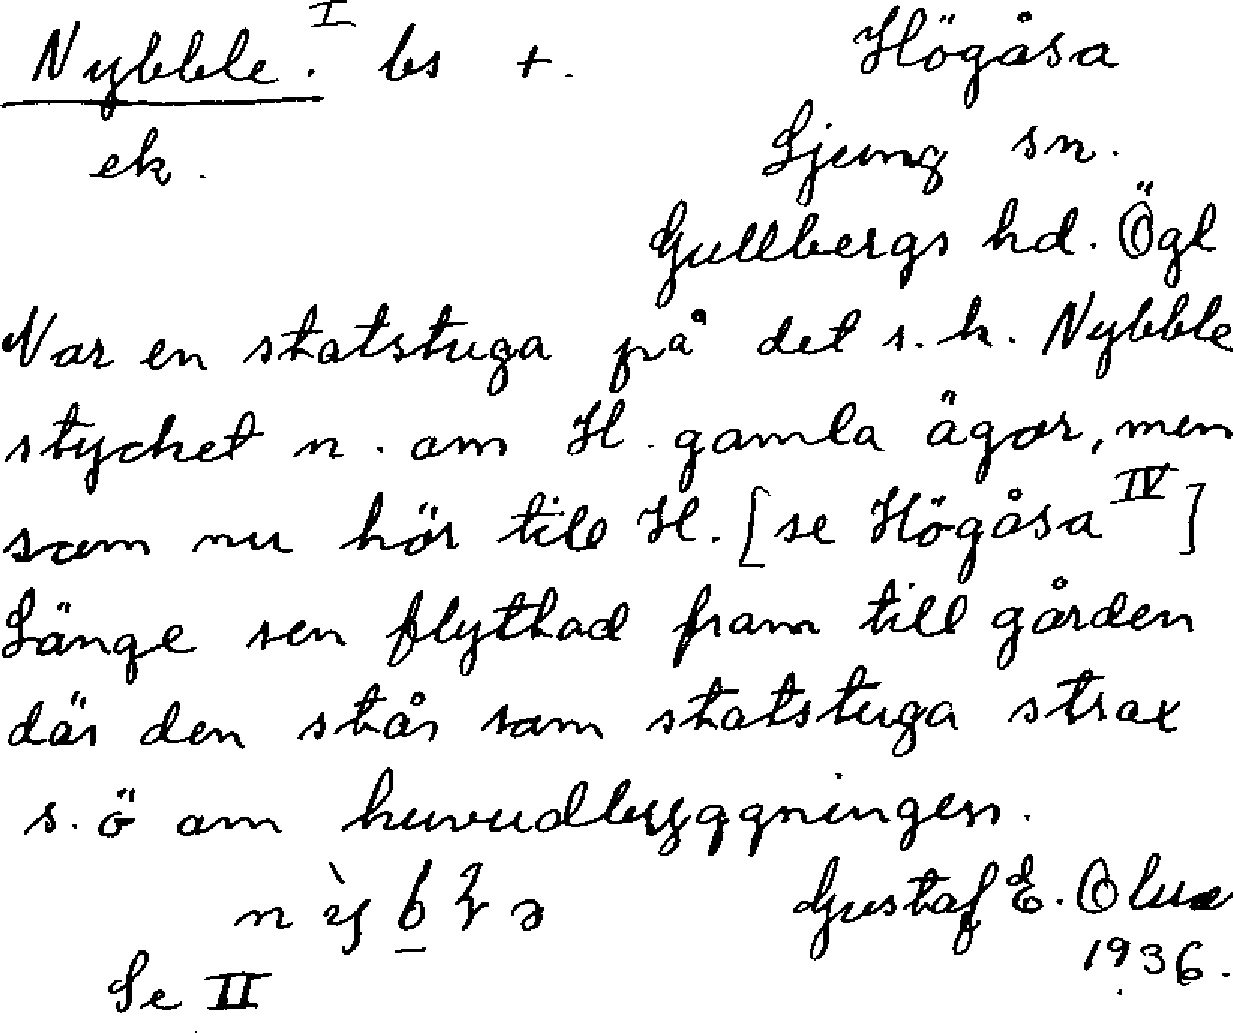 Nybble. I bs +. Högåsa
ek. Ljung sn.
Gullbergs hd. Ögl
Var en statstuga på det s.k. Nybble
stycket n. om H. gamla ägor, men
som nu hör till H. [se Högåsa IV]
Länge sen flyttad fram till gården
där den står som statstuga strax
s.ö om huvudbyggningen.
Gustaf E.
1936.
Se II